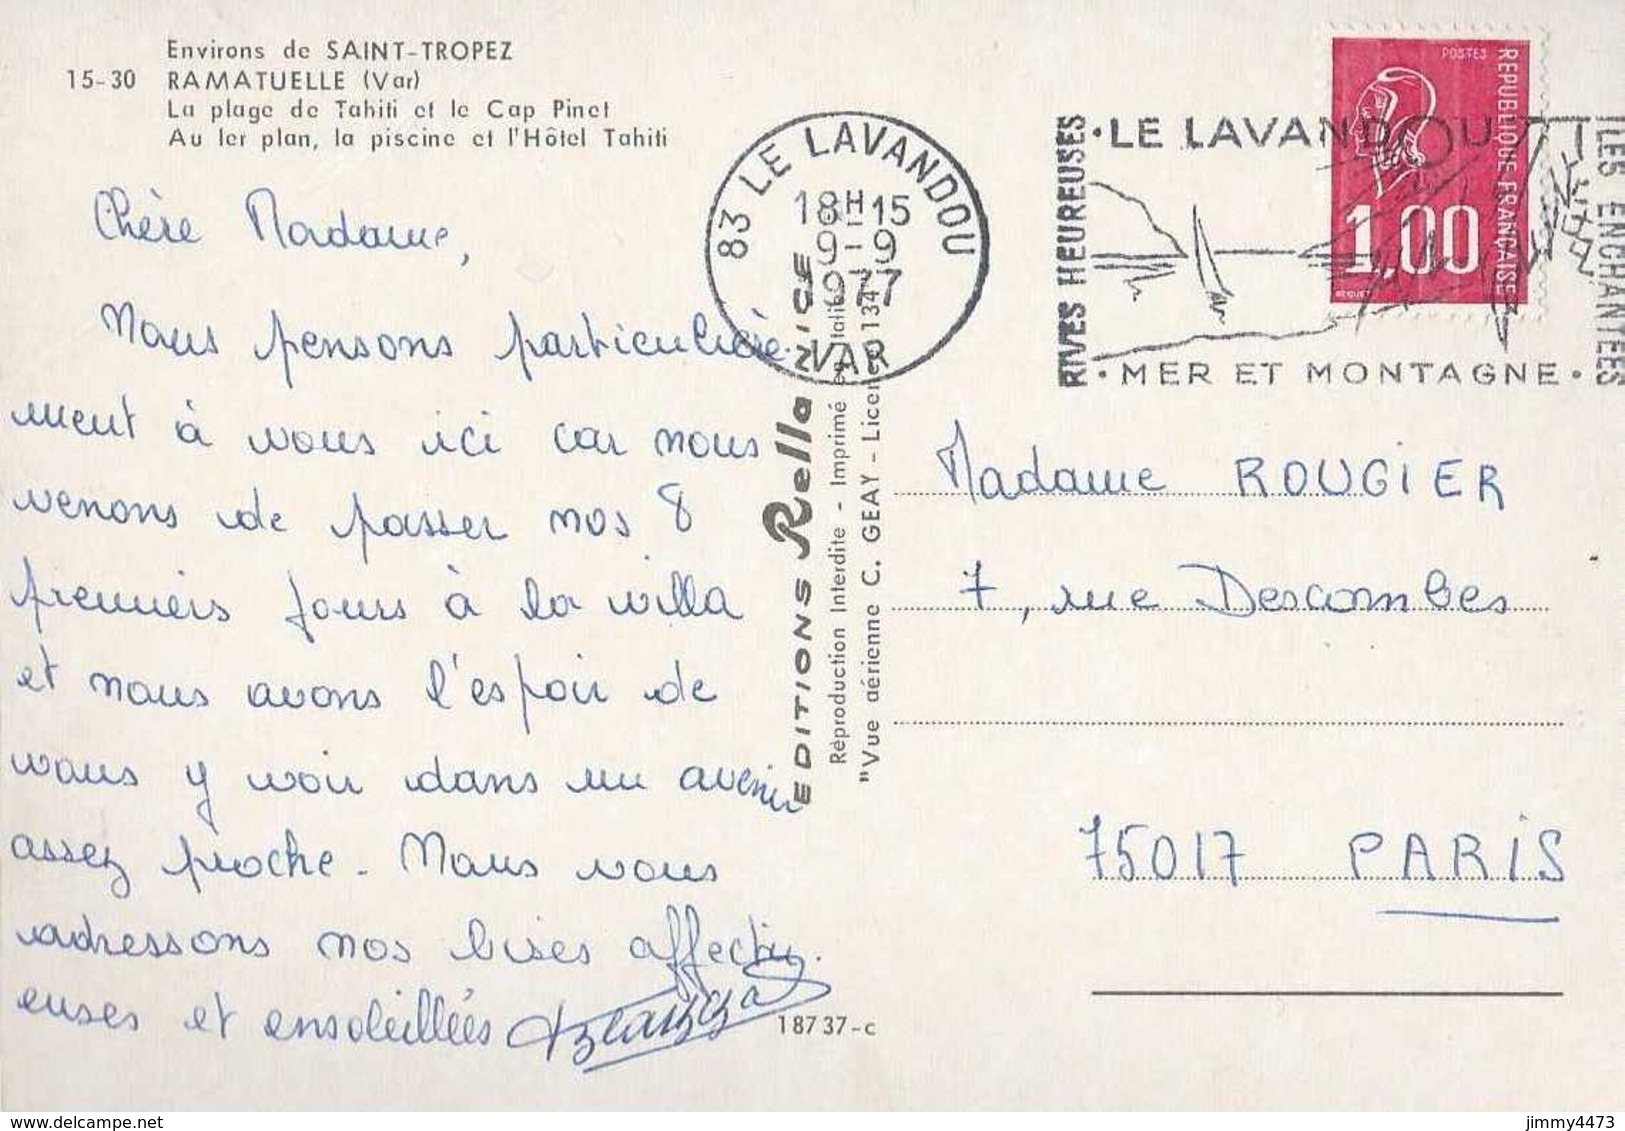 Environs de SAINT-TROPEZ
15-30 RAMATUELLE (Var)
La plage de Tahiti et le Cap Pinet
Au 1er plan, la piscine et l'Hôtel Tahiti
Chère Madame,
Nous pensons particulière-
ment à vous ici car nous
venons de passer nos 8
premiers jours à la villa
et nous avons l'espoir de
vous y voir dans un avenir
assez proche. Nous vous
adressons nos bises affectu-
euses et ensoleillées
18737-c
EDITIONS Rella NICE
Réproduction Interdite - Imprimé en Italie
"Vue aérienne C. GEAY - Licence 134
83 LE LAVANDOU
18H15
9-9
1977
VAR
RIVES HEUREUSES
• LE LAVANDOU
ILES ENCHANTEES
• MER ET MONTAGNE •
POSTES
REPUBLIQUE FRANÇAISE
1,00
BEQUET
Madame ROUGIER
7, rue Descombes
75017 PARIS
delcampe.net
jimmy4473